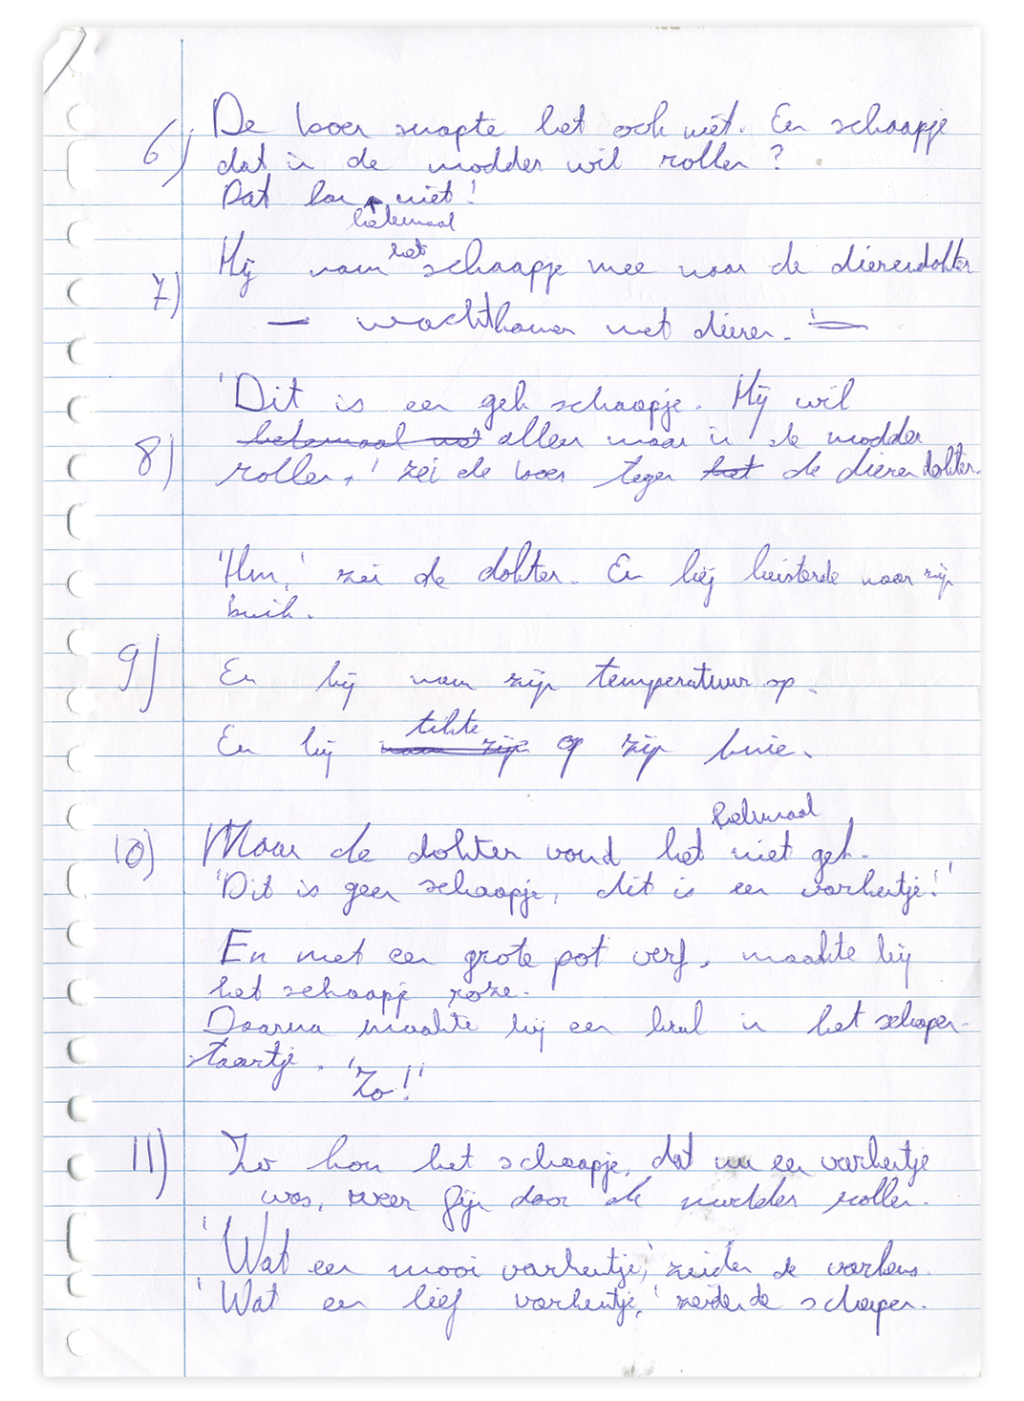 6) De boer snapte het ook niet. Een schaapje
dat in de modder wil rollen?
Dat kan helemaal niet!
7) Hij nam het schaapje mee naar de dierendokter
— wachtkamer met dieren. —
'Dit is een gek schaapje. Hij wil
8) helemaal niet alleen maar in de modder
rollen,' zei de boer tegen het de dierendokter.
'Hm,' zei de dokter. En hij luisterde naar zijn
buik.
9) En hij nam zijn temperatuur op.
En hij nam zijn tikte op zijn knie.
10) Maar de dokter vond het helemaal niet gek.
'Dit is geen schaapje, dit is een varkentje!'
En met een grote pot verf, maakte hij
het schaapje roze.
Daarna maakte hij een krul in het schapen-
staartje. 'Zo!'
11) Zo kon het schaapje, dat nu een varkentje
was, weer fijn door de modder rollen.
'Wat een mooi varkentje,' zeiden de varkens.
'Wat een lief varkentje,' zeiden de schapen.